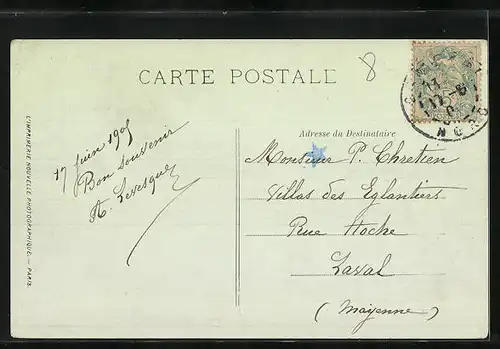 CARTE POSTALE
8
17 juin 1905
Bon souvenir
A. Levesque
Adresse du Destinataire
Monsieur P. Chretien
Villas des Eglantiers
Rue Hoche
Laval
(Mayenne)
L'IMPRIMERIE NOUVELLE PHOTOGRAPHIQUE. — PARIS.
NORD